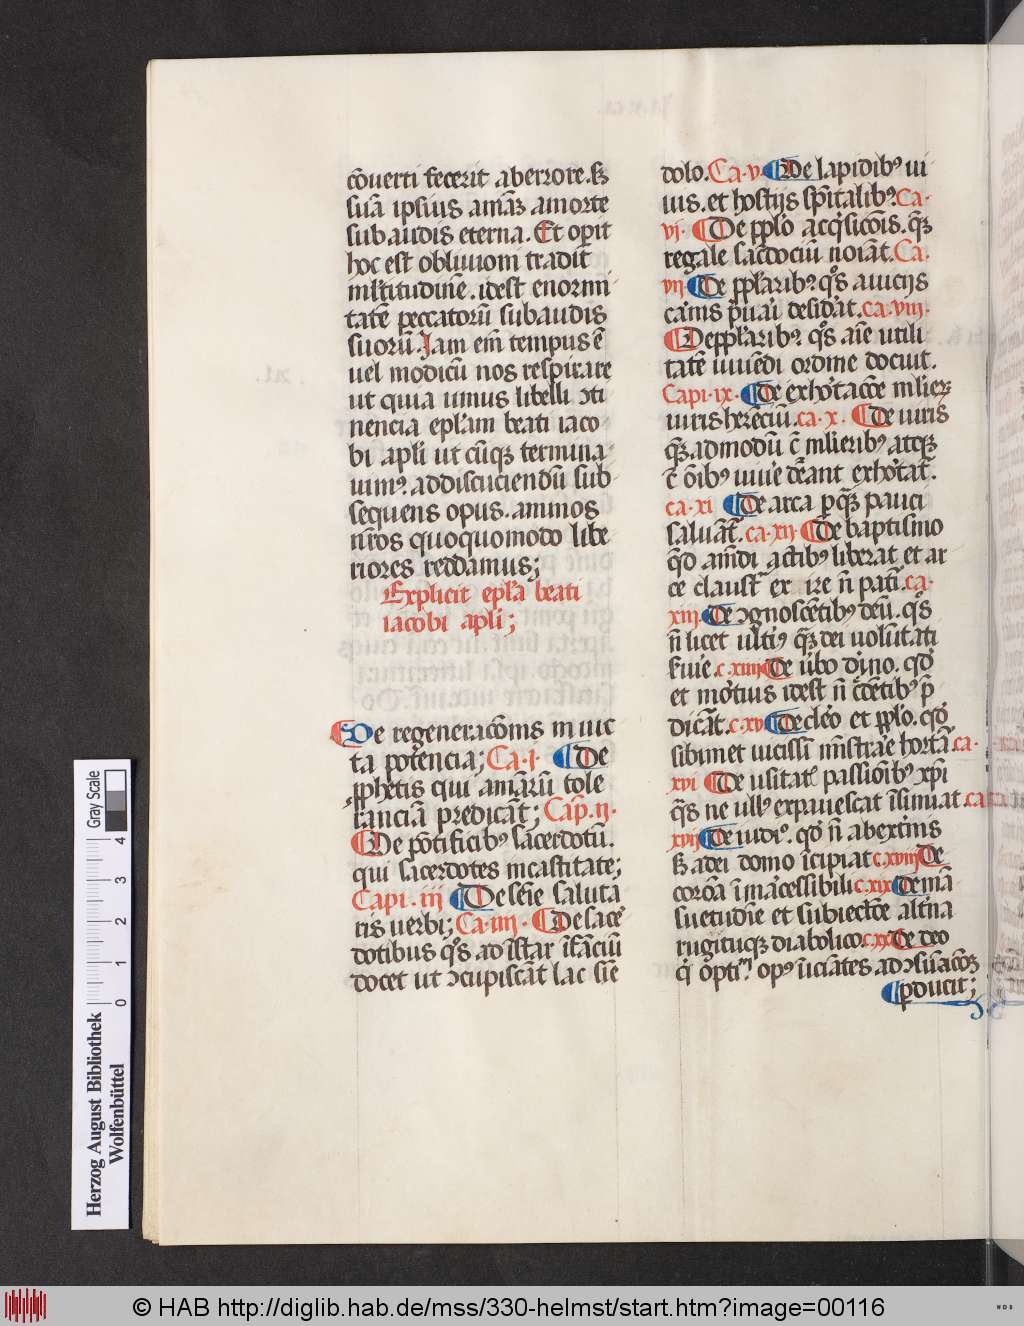 cōuerti fecerit ab errore. sꝫ
suā ipsius animā a morte
subaudis eterna. Et opīt
hoc est obliuioni tradit
ml̄titudinē. idest enormi
tatē peccatorū subaudis
suorū. Iam em̄ tempus ē
uel modicū nos respirare
ut quia unius libelli ↄti
nencia epl̄am beati iaco
bi apl̄i ut cūqꝫ termina
uimꝰ. ad discuciendū sub
sequens opus. animos
nr̄os quoquomodo libe
riores reddamus;
Explicit epl̄a beati
iacobi apl̄i;
De regeneracōnis inuic
ta potencia; Ca. i. De
ꝓphetis qui
tole
ranciā predicāt; Cap̄. ii.
De pōtificibꝰ sacerdotū.
qui sacerdotes in castitate;
Capi. iii De
saluta
ris uerbi; Ca. iiii. De sac̄e
dotibus q̊s ad īstar īfāciū
docet ut ↄcupiscāt lac sīe
dolo. Ca. v. De lapidibꝰ ui
uis. et hostijs sp̄italibꝰ. Ca.
vi. De ppl̄o acq̄sicōis. q̄ꝫ
regale sac̄dociū noīāt. Ca.
vii De ppl̄aribꝰ q̊s a uicijs
carnis p̄uaī desid̄at. ca. viii.
De ppl̄aribꝰ q̊s
utili
tatē uiuēdi ordine docuit.
Capi. ix. De exhortacōe ml̄ieꝝ
uiris herēciū. ca. x. De uiris
q̄ꝫ admodū c̄ ml̄ieribꝰ atqꝫ
c̄ oībꝰ uiu̇e
exhortat̄.
ca. xi De arca p q̄ꝫ pauci
saluāt̄. ca. xii. De baptismo
qd̄
actibꝰ liberat et ar
ce
n̄ pati. ca.
xiii. De ↄgnoscētibꝰ deū. q̊s
n̄ licet ult̄iꝰ q̄ꝫ dei uolūtati
s̄uire. c. xiiii De u̇bo diuīo. qd̄
et mortuis idest n̄ c̄dētibꝰ p̄
dicāt̄. c. xv De cl̄o et ppl̄o. qd̄
sibimet uicissī mīstrāe hortāt̄. ca.
xvi De usitatꝭ passiōibꝰ xp̄i
q̄s ne ullꝰ expauescat īsinuat. ca.
xvii De iudic̄. qd̄ n̄ ab extīis
sꝫ a dei domo īcipiat c. xviii De
corōa īmarcessibili c. xix De mā
suetudīe et subiectōe alt̄na
rugituqꝫ diabolico. c. xx De deo
q̄ opti
opꝰ
ad ↄsūacōeꝫ
ꝑducit;
Gray Scale
0 1 2 3 4
Herzog August Bibliothek
Wolfenbüttel
© HAB http://diglib.hab.de/mss/330-helmst/start.htm?image=00116